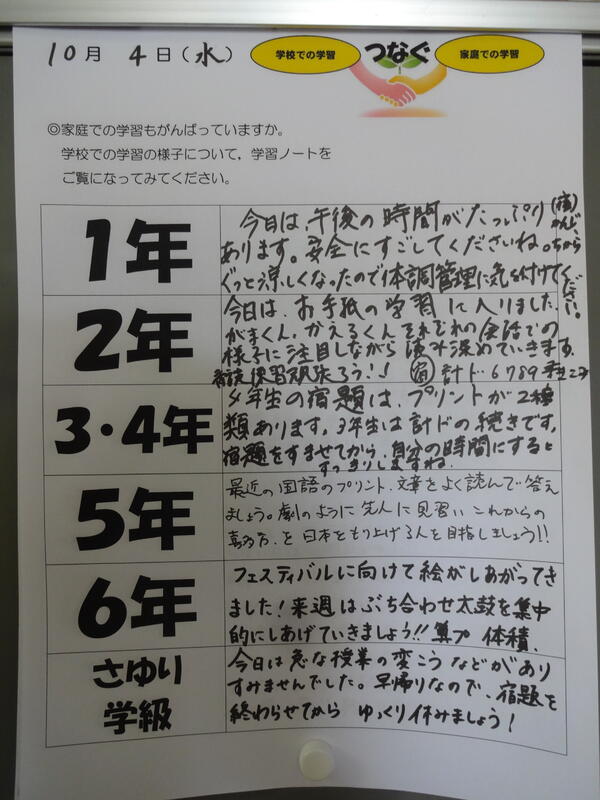 10月 4日(水)
学校での学習 つなぐ 家庭での学習
◎家庭での学習もがんばっていますか。
学校での学習の様子について，学習ノートを
ご覧になってみてください。
1年
今日は、午後の時間がたっぷり
あります。安全にすごしてくださいね。
ぐっと涼しくなったので体調管理に気を付けてください。
(宿)かんじ、ちから
2年
今日は、お手紙の学習に入りました。
がまくん、かえるくんそれぞれの会話での
様子に注目しながら読み深めていきます。
音読練習頑張ろう!! (宿)計ド 6789
3・4年
4年生の宿題は、プリントが2種
類あります。3年生は計ドの続きです。
宿題をすませてから、自分の時間にすると
すっきりしますね。
5年
最近の国語のプリント、文章をよく読んで答え
ましょう。劇のように先人に見習い これからの
喜多方、を日本をもり上げる人を目指しましょう!!
6年
フェスティバルに向けて絵がしあがってき
ました!来週はぶち合わせ太鼓を集中
的にしあげていきましょう!!算プ 体積、
さゆり
学級
今日は急な授業の変こうなどがあり
すみませんでした。早帰りなので、宿題を
終わらせてから ゆっくり休みましょう!